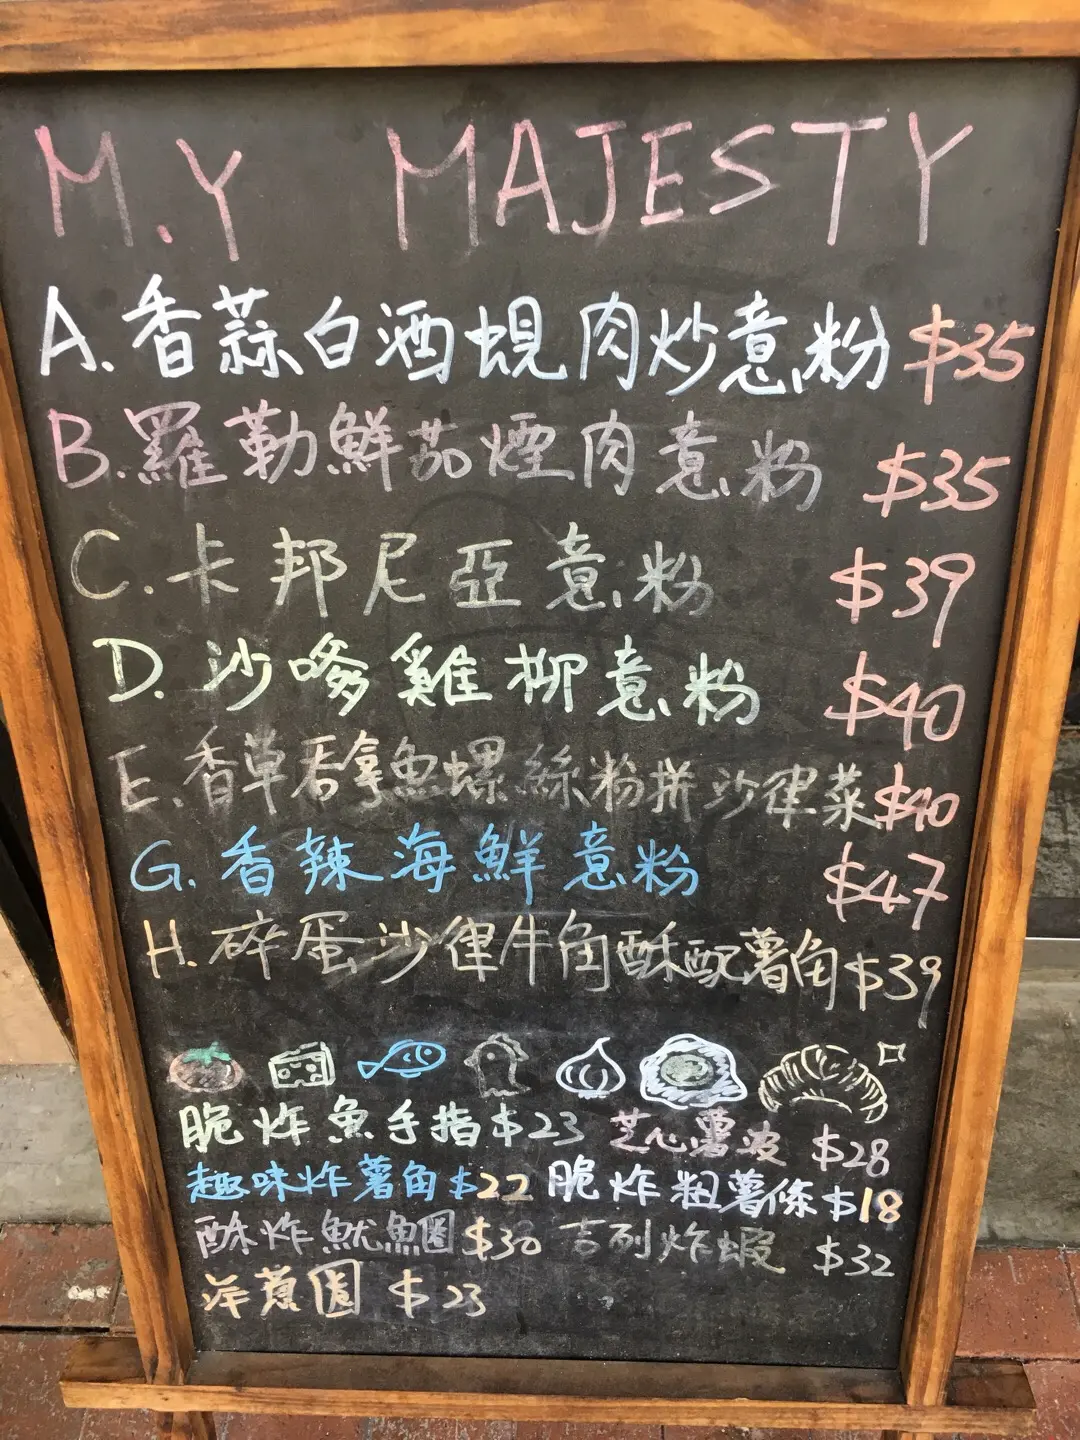 M.Y MAJESTY
A.香蒜白酒蜆肉炒意粉 $35
B.羅勒鮮茄煙肉意粉 $35
C.卡邦尼亞意粉 $39
D.沙嗲雞柳意粉 $40
E.香草吞拿魚螺絲粉拼沙律菜 $40
G.香辣海鮮意粉 $47
H.碎蛋沙律牛角酥配薯角 $39
脆炸魚手指 $23 芝心薯波 $28
趣味炸薯角 $22 脆炸粗薯條 $18
酥炸魷魚圈 $30 吉列炸蝦 $32
洋蔥圈 $23